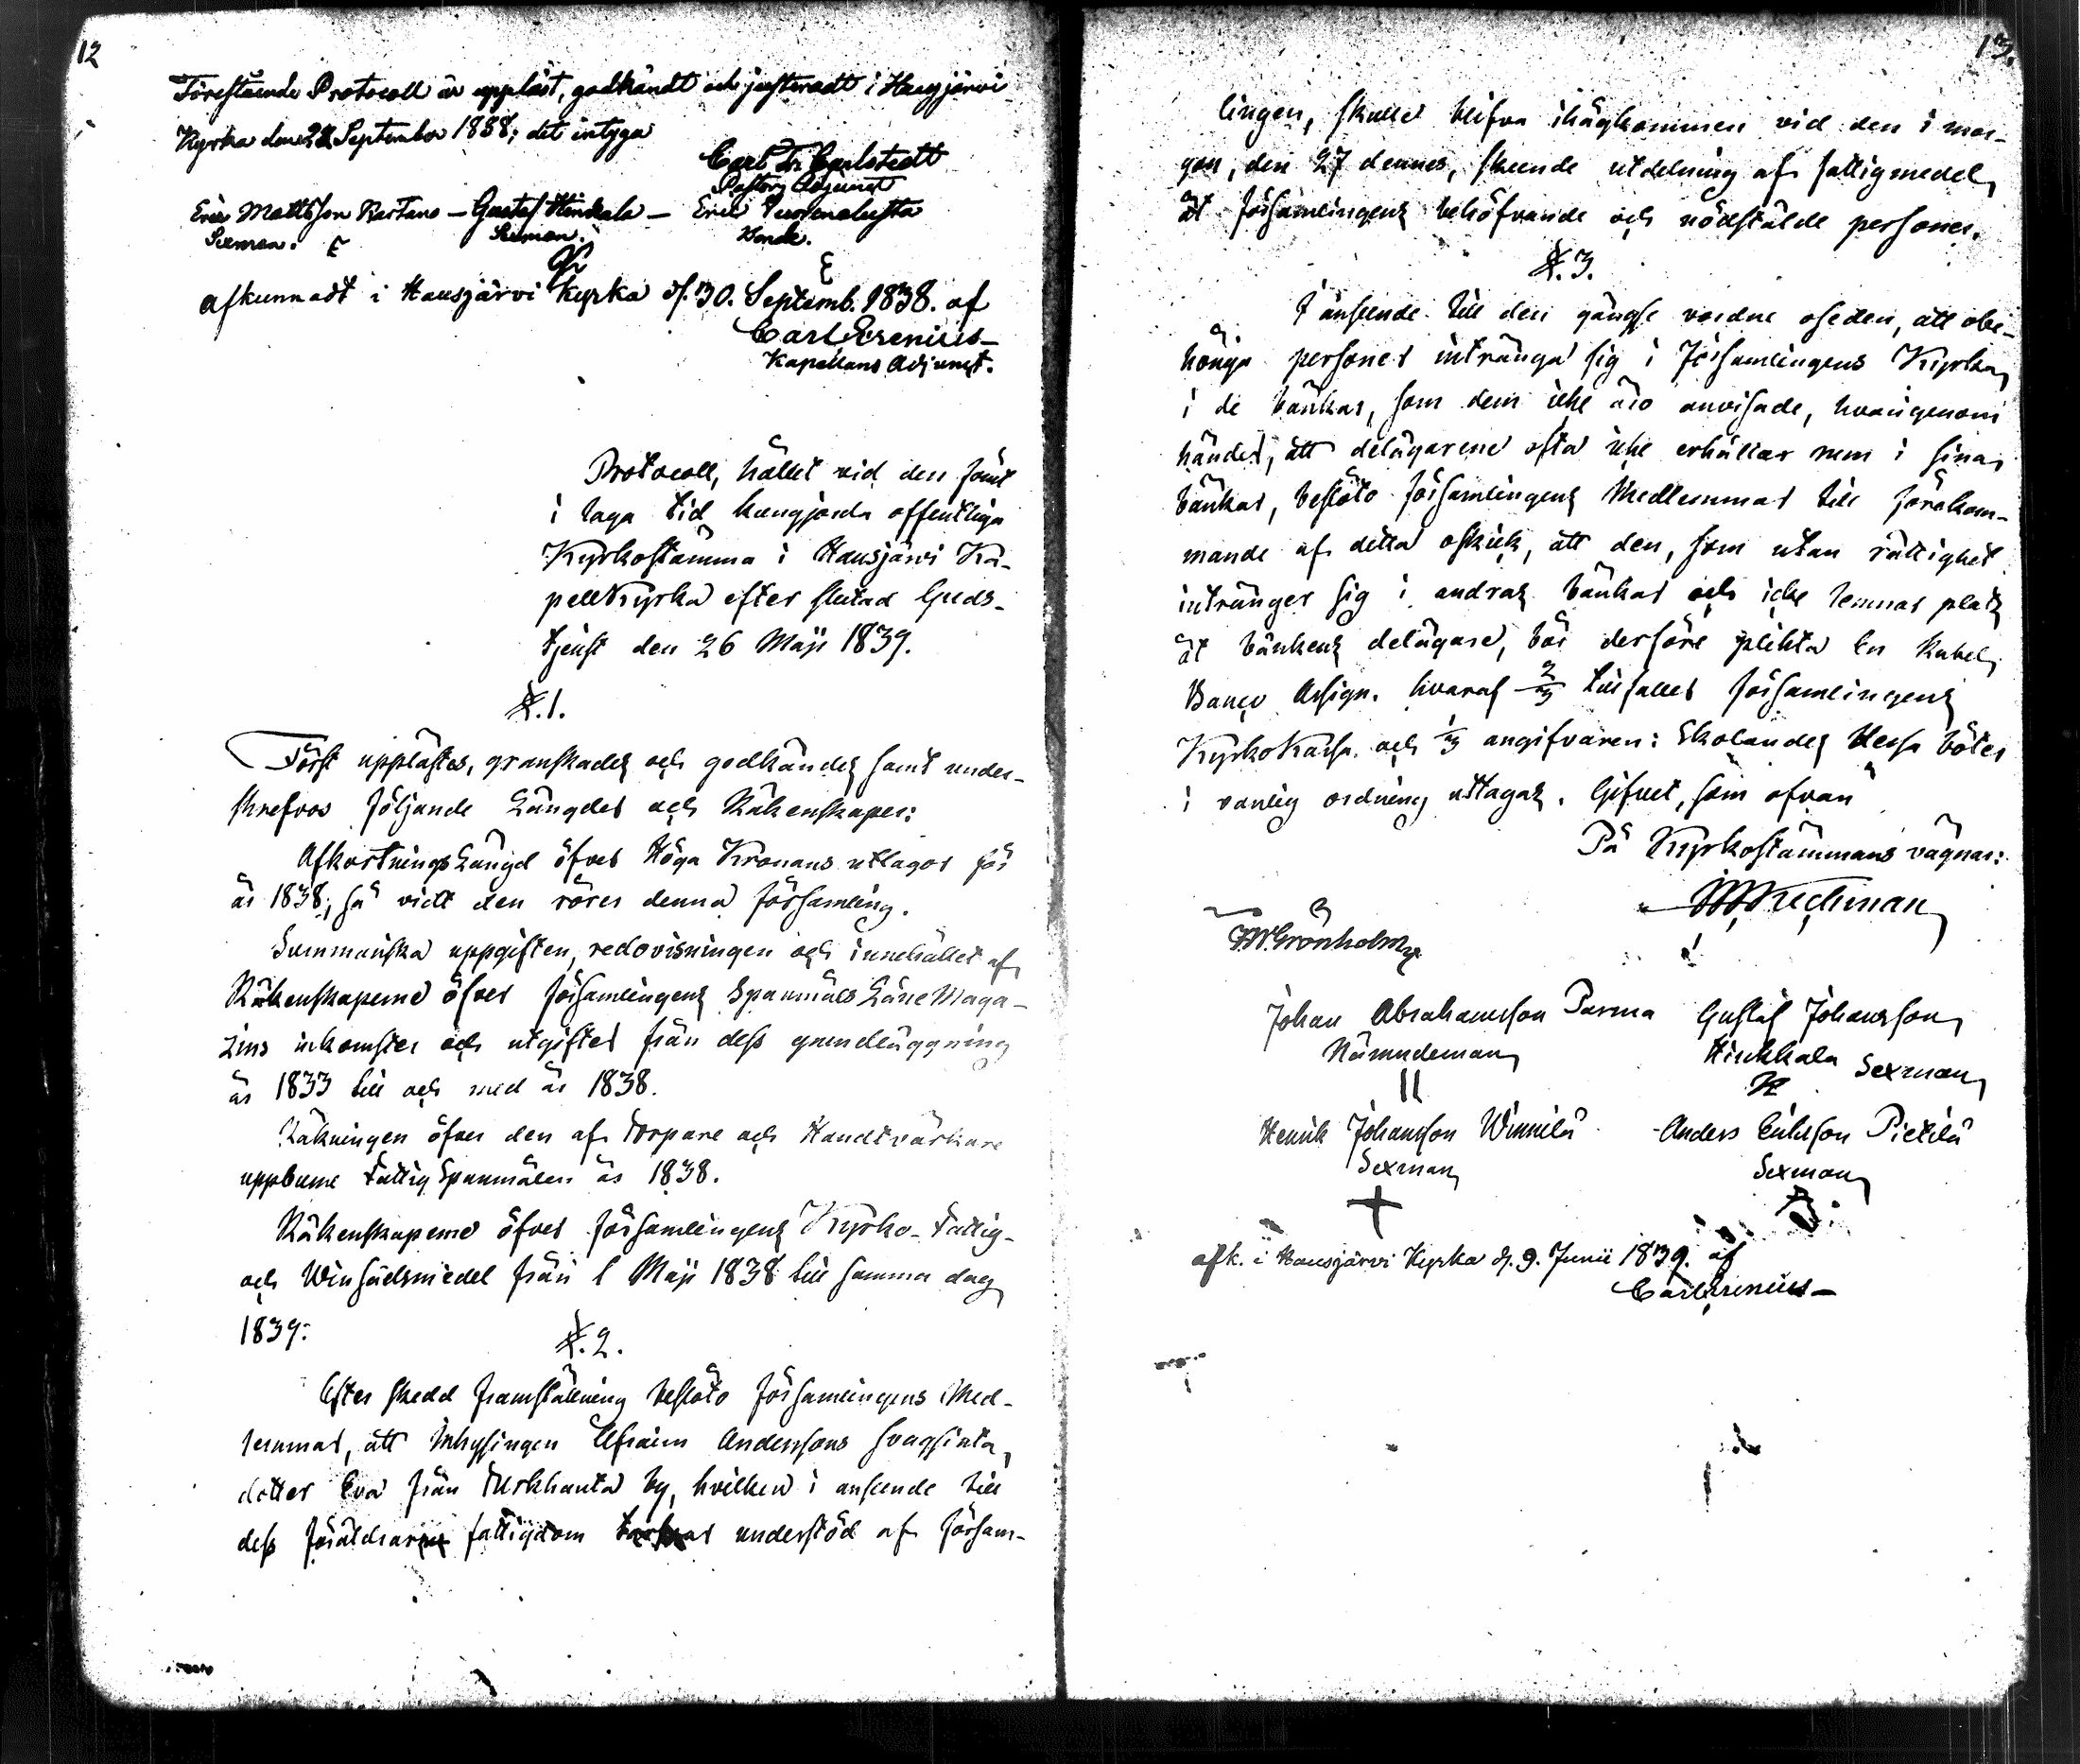 12
Förestående Protocoll är uppläst, godkändt och justeradt i Hausjärvi
Kyrka den 23 September 1838; det intyga
Carl Fr. Carlstedt
Pastors Adjunct
Eric Mattsson Rastano — Gustaf Hinkala — Eric Puusnalusta
Sexman. Sexman. Bonde.
afkunnadt i Hausjärvi Kyrka d. 30. Septemb. 1838. af
Carl Serenius —
Kapellans Adjunct.
Protocoll, hållet vid den samt
i laga tid kungjorda offentliga
Kyrkostämma i Hausjärvi Ka-
pellkyrka efter slutad Guds-
tjenst den 26 Maji 1839.
§. 1.
Först upplästes, granskades och godkändes samt under-
skrefvos följande Längder och Räkenskaper:
Afkortnings Längd öfver Höga Kronans utlagor för
år 1838, så vidt den rörer denna församling.
Summariska uppgiften, redovisningen och innehållet af
Räkenskaperne öfver församlingens Spanmåls Låne Maga-
zins inkomster och utgifter från dess grundläggning
år 1833 till och med år 1838.
Räkningen öfver den af Torpare och Handtvärkare
uppburne Fattig Spanmålen år 1838.
Räkenskaperne öfver församlingens Kyrko- Fattig-
och Winsädsmedel från 1 Maji 1838 till samma dag
1839:
§. 2.
Efter skedd framställning beslöto församlingens Med-
lemmar, att Inhysingen Efraim Anderssons svagsinta
dotter Eva från Turkhauta by, hvilken i anseende till
dess föräldrars fattigdom understöd af försam-
13.
lingen, skulle blifva ihågkommen vid den i mor-
gon, den 27 dennes, skeende utdelning af fattigmedel,
åt församlingens behöfvande och nödstälde personer.
§. 3.
I anseende till den gängse vordne oseden, att obe-
höriga personer intränga sig i församlingens Kyrka,
i de bänkar, som dem icke äro anvisade, hvarigenom
händer, att delägarene ofta icke erhållar rum i sina
bänkar, beslöto församlingens Medlemmar till förekom-
mande af detta oskick, att den, som utan rättighet
intränger sig i andras bänkar och icke lemnar plats
åt bänkens delägare, bör derföre plikta En Rubel
Banco Assign. hvaraf 2/3 tillfaller församlingens
KyrkoKassa och 1/3 angifvaren: Skolandes dessa böter
i vanlig ordning uttagas. Gifvet, som ofvan
På Kyrkostämmans vägnar:
F.W. Grönholm
Johan Abrahamsson Parma Gustaf Johansson
Nämndeman Hinkkala Sexman
Henrik Johansson Winnilä Anders Eriksson Pietilä
Sexman Sexman
afk. i Hausjärvi Kyrka d. 9. Junii 1839. af
Carl Serenius —